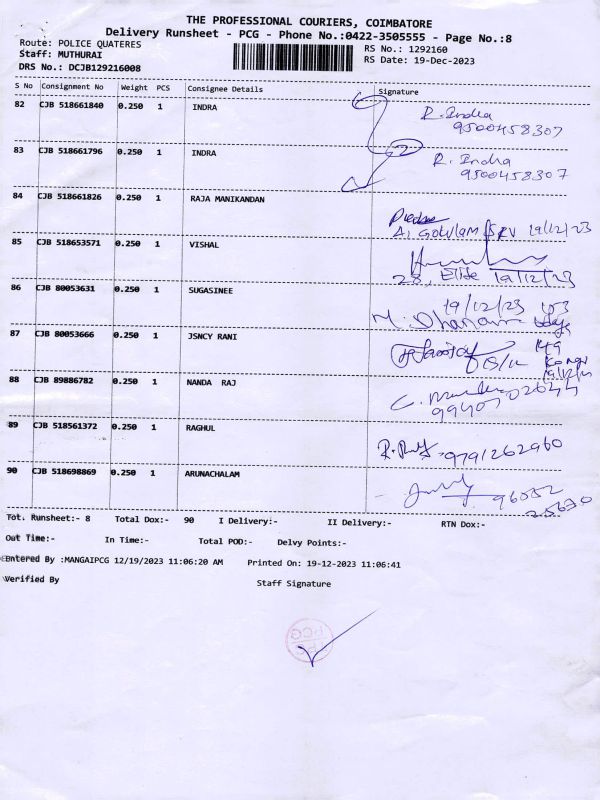 THE PROFESSIONAL COURIERS, COIMBATORE
Delivery Runsheet - PCG - Phone No.:0422-3505555 - Page No.:8
Route: POLICE QUATERES
RS No.: 1292160
Staff: MUTHURAI
RS Date: 19-Dec-2023
DRS No.: DCJB129216008
S No Consignment No Weight PCS Consignee Details Signature
82 CJB 518661840 0.250 1 INDRA R. Indra
9500458307
83 CJB 518661796 0.250 1 INDRA R. Indra
9500458307
84 CJB 518661826 0.250 1 RAJA MANIKANDAN
A, Gokulam 19/12/23
85 CJB 518653571 0.250 1 VISHAL
28, Elite 19/12/23
86 CJB 80053631 0.250 1 SUGASINEE 19/12/23 103
M. Dhanam
87 CJB 80053666 0.250 1 JSNCY RANI 149
88 CJB 89886782 0.250 1 NANDA RAJ
89 CJB 518561372 0.250 1 RAGHUL 9791262960
90 CJB 518698869 0.250 1 ARUNACHALAM
Tot. Runsheet:- 8 Total Dox:- 90 I Delivery:- II Delivery:- RTN Dox:-
Out Time:- In Time:- Total POD:- Delvy Points:-
Entered By :MANGAIPCG 12/19/2023 11:06:20 AM Printed On: 19-12-2023 11:06:41
Verified By Staff Signature
PCG